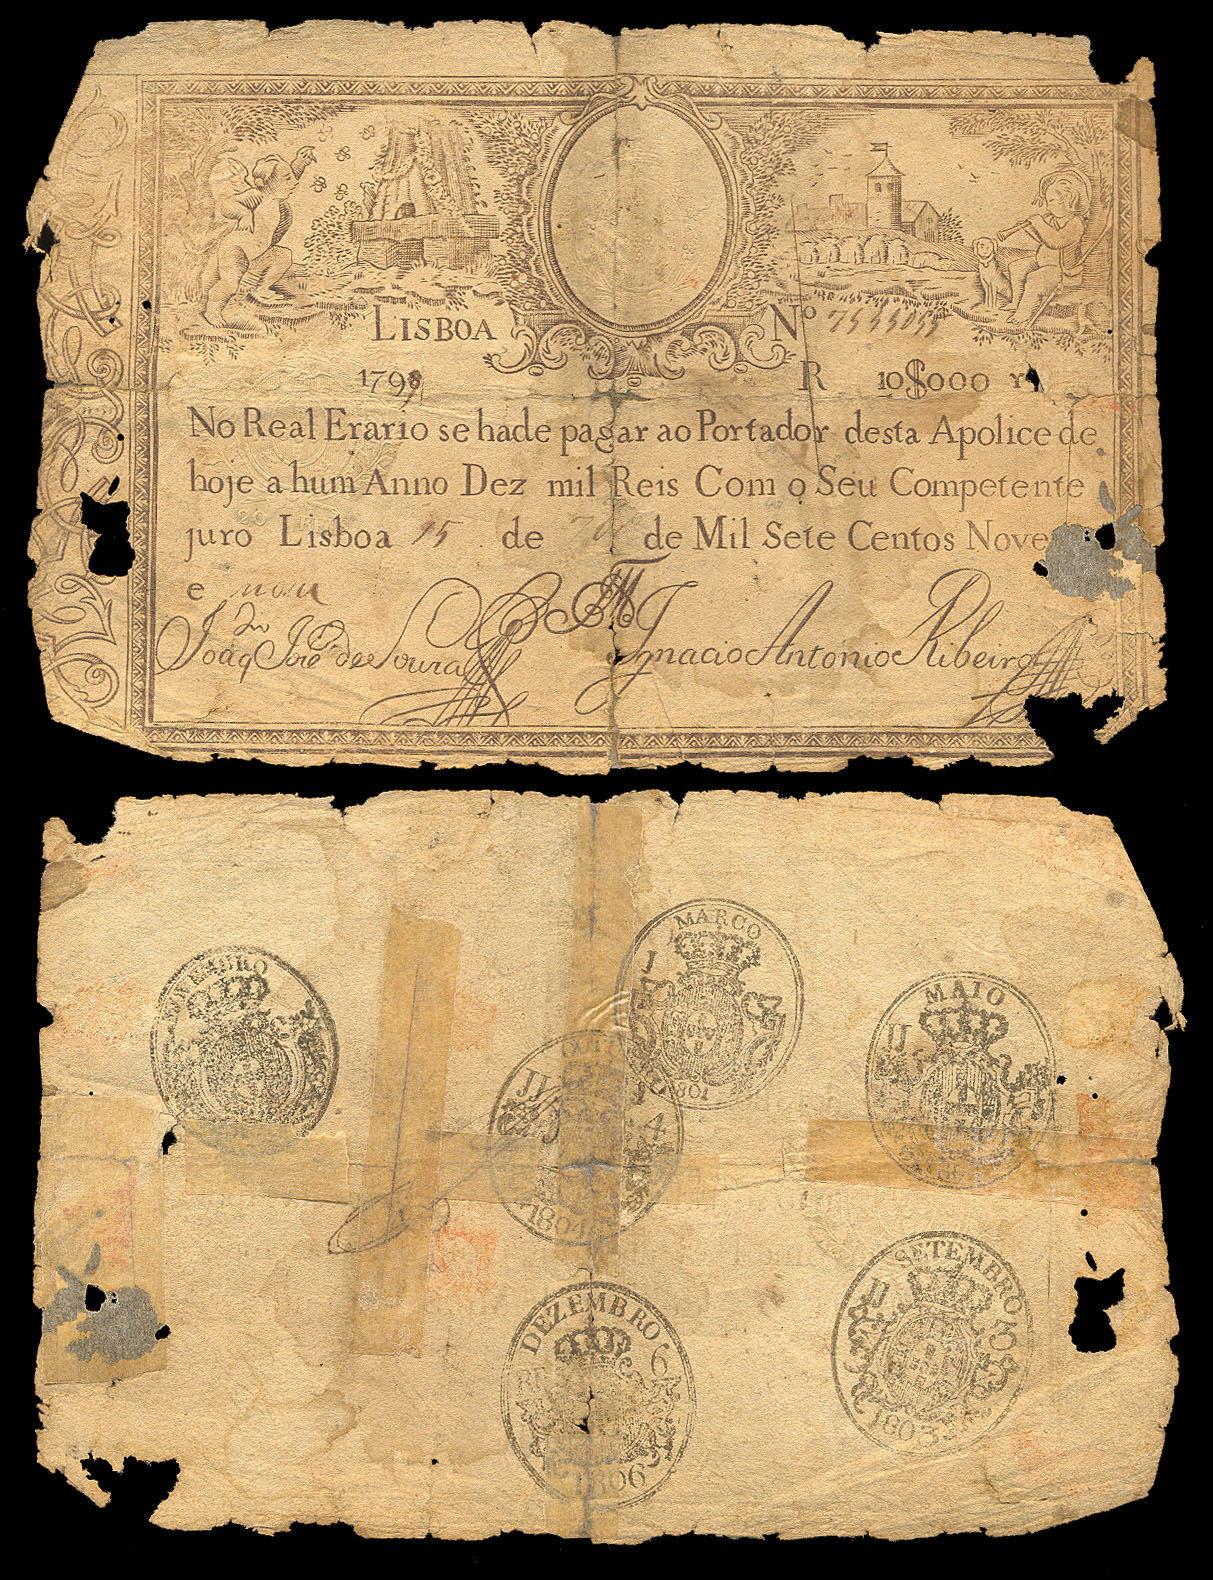 LISBOA
Nº
1799
R 10$000 rs
No Real Erario se hade pagar ao Portador desta Apolice de
hoje a hum Anno Dez mil Reis Com o Seu Competente
juro Lisboa 15 de de Mil Sete Centos Nove
e nove
Joaqm José de Souza
Ignacio Antonio Ribeiro
MARCO
1801
MAIO
OUTU
1804
SETEMBRO
1803
DEZEMBRO 6
1806